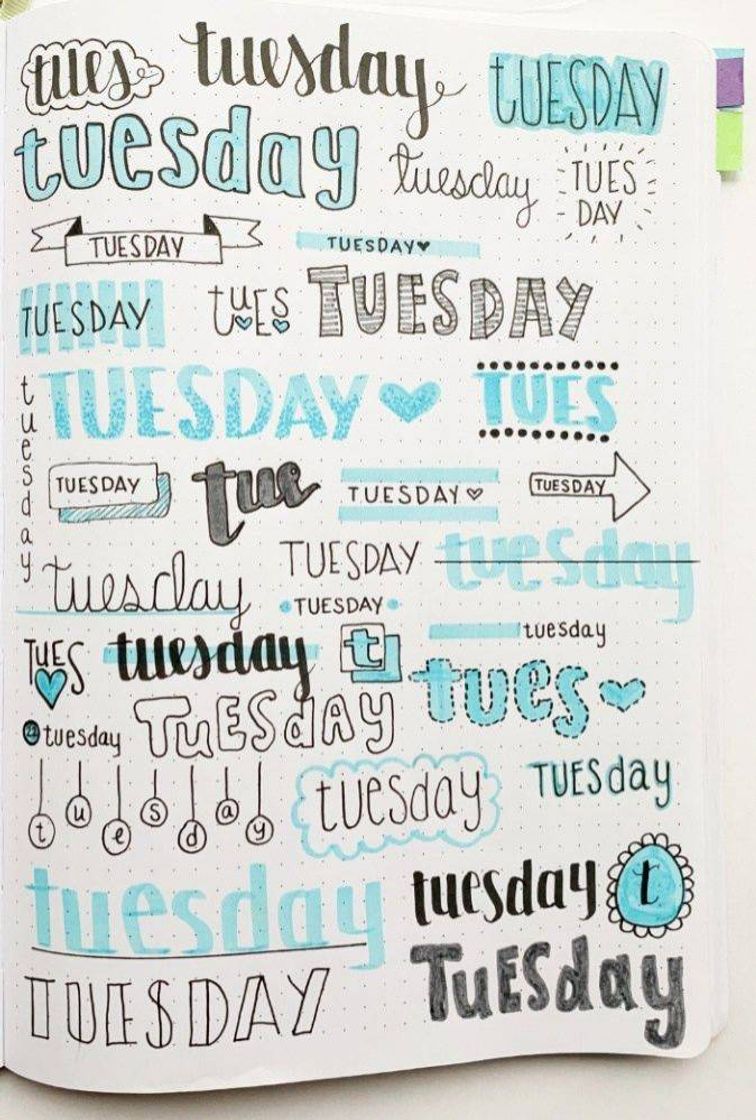 tues tuesday TUESDAY
tuesday tuesday TUES
DAY
TUESDAY TUESDAY
TUESDAY tUES TUESDAY
tuesday
TUESDAY TUES
TUESDAY tue TUESDAY TUESDAY
tuesday TUESDAY tuesday
TUESDAY
TUES tuesday t tuesday
tues
22 tuesday TUESdAY
tuesday tuesday TUESday
tuesday tuesday t
TUESDAY TuESday